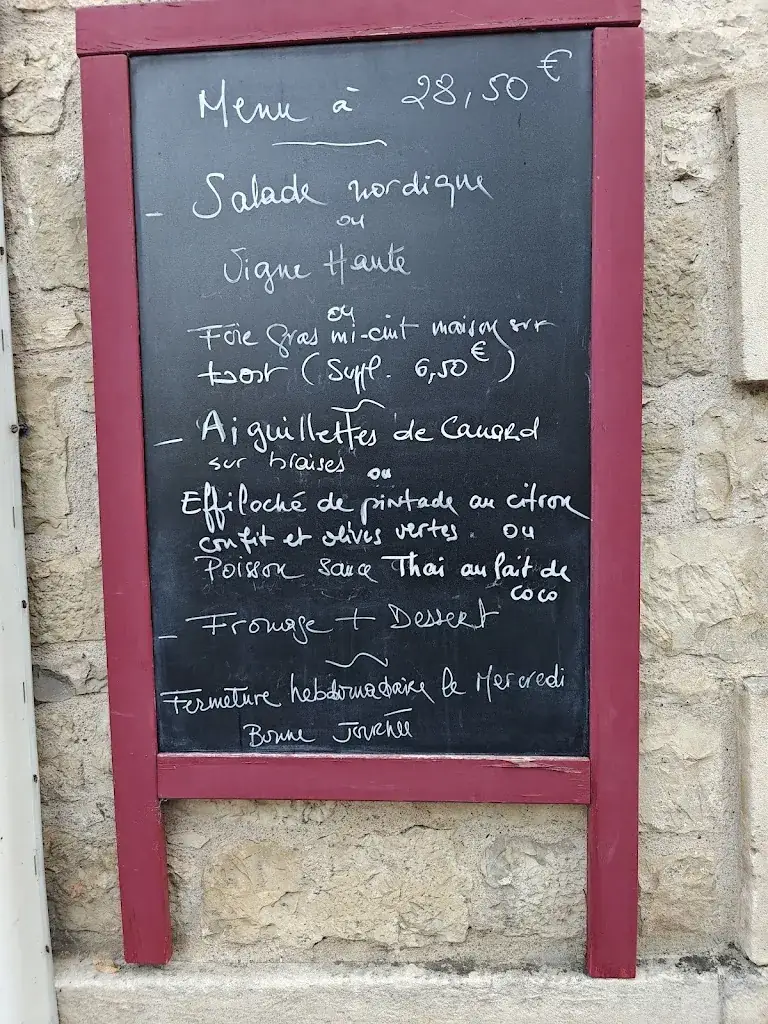 Menu à 28,50€
- Salade nordique
ou
Vigne Haute
ou
Foie gras mi-cuit maison sur
toast (Suppl. 6,50€)
- Aiguillettes de Canard
sur braises ou
Effiloché de pintade au citron
confit et olives vertes. ou
Poisson sauce Thai au lait de
coco
- Fromage + Dessert
Fermeture hebdomadaire le Mercredi
Bonne Journée